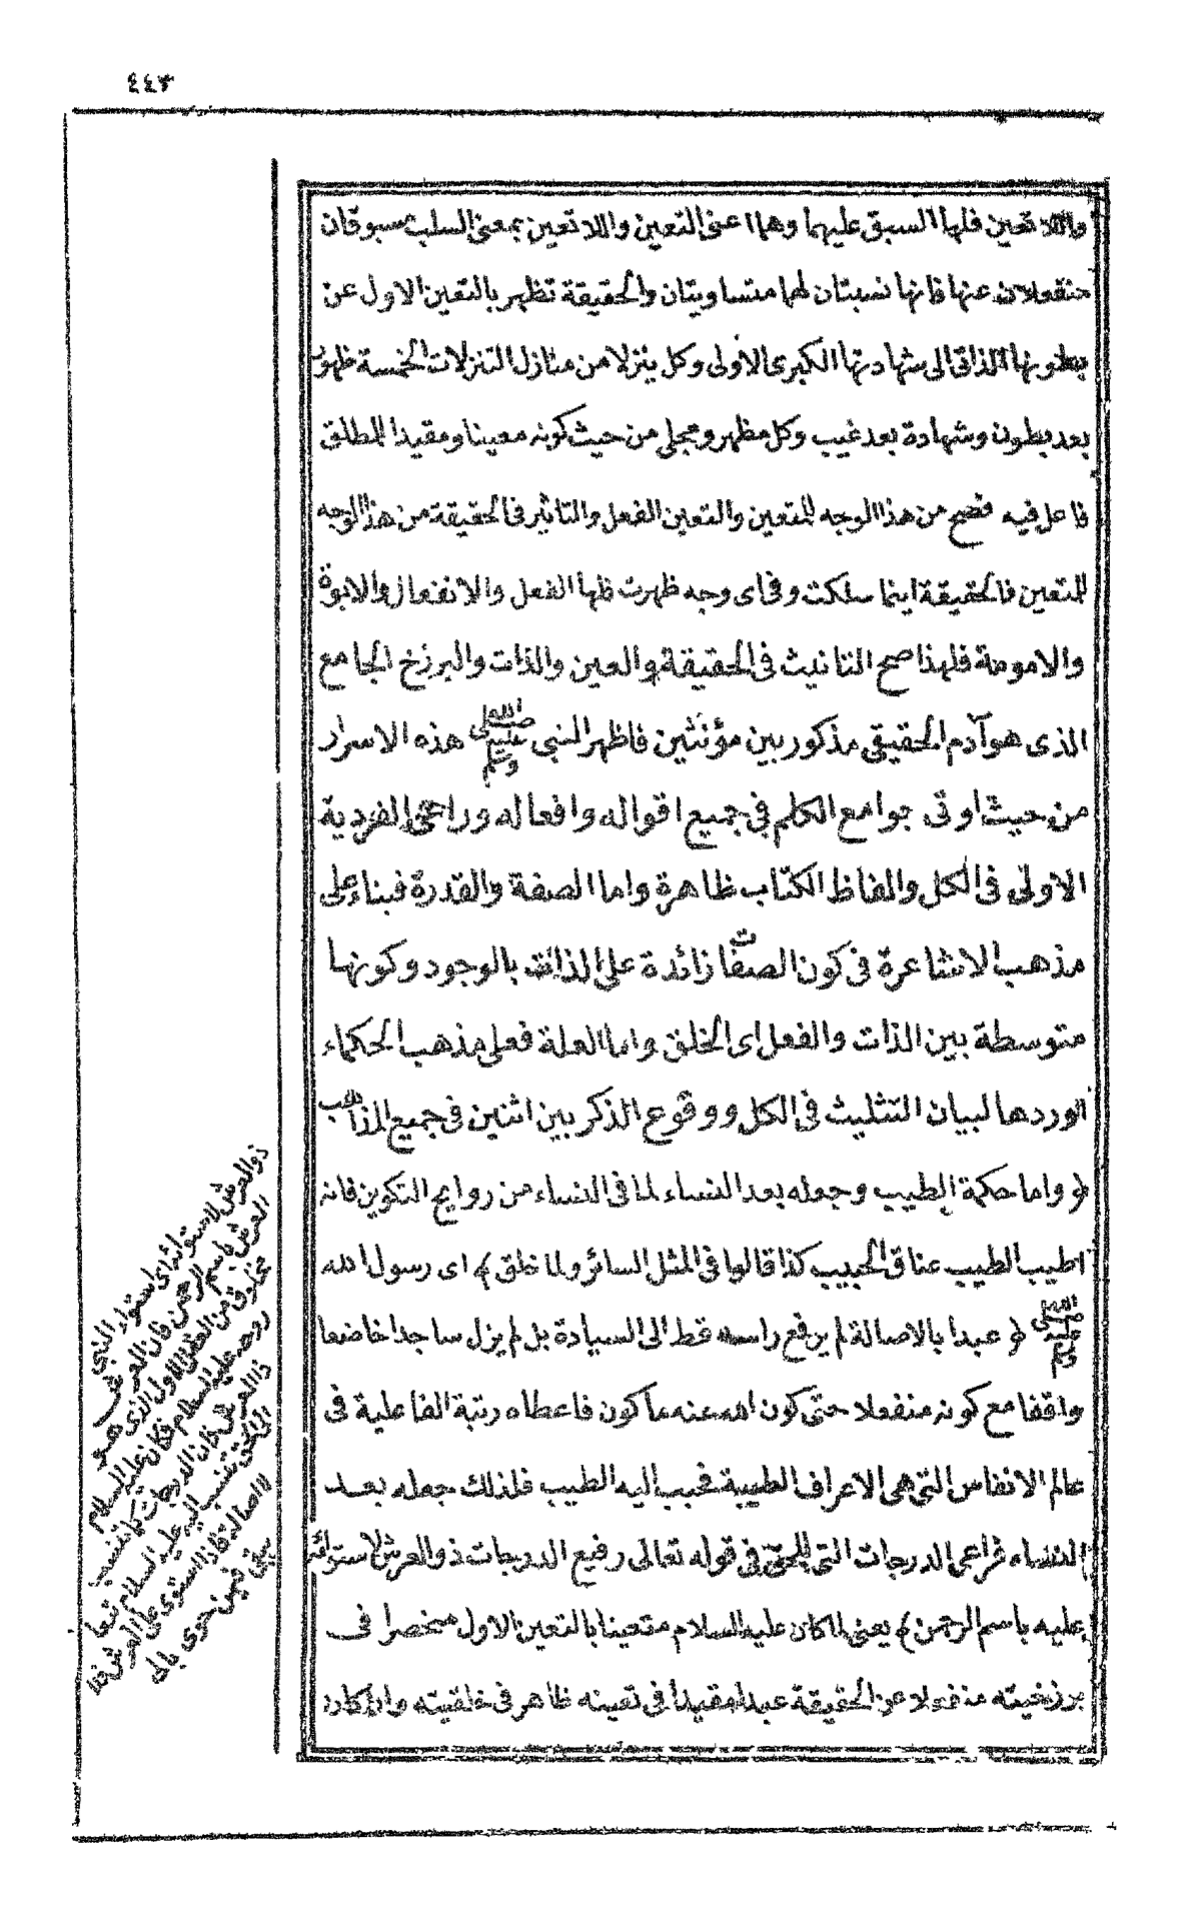 ٤٤٣
واللا تعين فلها السبق عليهما وهما اعنى التعين واللا تعين بمعنى السلب مسبوقان
منفعلان عنها فانها نسبتان لهما متساويتان والحقيقة تظهر بالتعين الاول عن
بطونها الذاتى الى شهادتها الكبرى الاولى وكل ينزلا من منازل التنزلات الخمسة ظهور
بعد بطون وشهادة بعد غيب وكل مظهر ومجلى من حيث كونه معينا ومقيدا للمطلق
فاعل فيه فصح من هذا الوجه للمتعين والتعين الفعل والتاثير فى الحقيقة من هذا الوجه
للمتعين فالحقيقة اينما سلكت وفى اى وجه ظهرت فلها الفعل والانفعال والابوة
والامومة فلهذا صح التانيث فى الحقيقة والعين والذات والبرزخ الجامع
الذى هو آدم الحقيقى مذكور بين مؤنثين فاظهر النبى صلى الله عليه وسلم هذه الاسرار
من حيث اوتى جوامع الكلم فى جميع اقواله وافعاله وراعى الفردية
الاولى فى الكل والفاظ الكتاب ظاهرة واما الصفة والقدرة فبناء على
مذهب الاشاعرة فى كون الصفات زائدة على الذات بالوجود وكونها
متوسطة بين الذات والفعل اى الخلق واما العلة فعلى مذهب الحكماء
اوردها لبيان التثليث فى الكل ووقوع الذكر بين اثنين فى جميع المذاهب
﴿ واما حكمة الطيب وجعله بعد النساء لما فى النساء من روايح التكوين فانه
اطيب الطيب عناق الحبيب كذا قالوا فى المثل السائر ولما خلق ﴾ اى رسول الله
صلى الله عليه وسلم ﴿ عبدا بالاصالة لم يرفع راسه قط الى السيادة بل لم يزل ساجدا خاضعا
واقفا مع كونه منفعلا حتى كون الله عنه ما كون فاعطاه رتبة الفاعلية فى
عالم الانفاس التى هى الاعراف الطيبة فحبب اليه الطيب فلذلك جعله بعد
النساء فراعى الدرجات التى للحق فى قوله تعالى رفيع الدرجات ذو العرش لاستوائه
عليه باسم الرحمن ﴾ يعنى لما كان عليه السلام متعينا بالتعين الاول منحصرا فى
برزخيته منفعلا عن الحقيقة عبدا مقيدا فى تعينه ظاهر فى خلقيته وان كان
ذو العرش لاستوائه اى استواء النبى
العرش باسم الرحمن فان العرش
مخلوق من العقل الاول الذى هو
روحه عليه السلام فكان عليه السلام
ذا العرش فان الدرجات كما تنسب
الى الحق تنسب اليه عليه السلام تبعا
لا اصالة فاذا استوى على العرش فلا
يبقى فيمن حوى